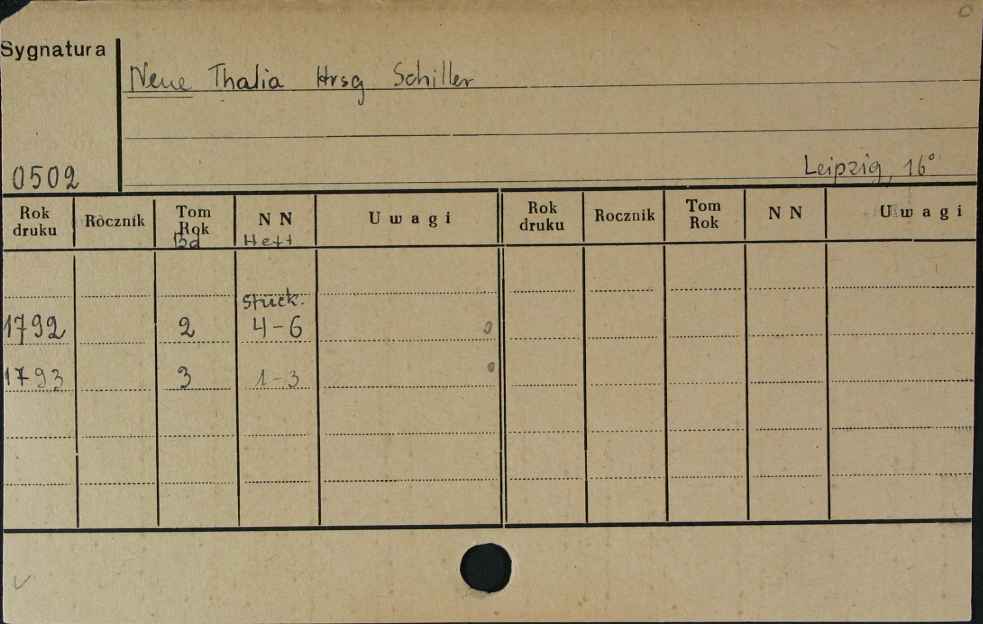 Sygnatura
Neue Thalia Hrsg Schiller
Leipzig, 16°
0502
Rok druku Rocznik Tom Rok N N Uwagi Rok druku Rocznik Tom Rok N N Uwagi
Bd Heft
Stück.
1792 2 4-6
1793 3 1-3